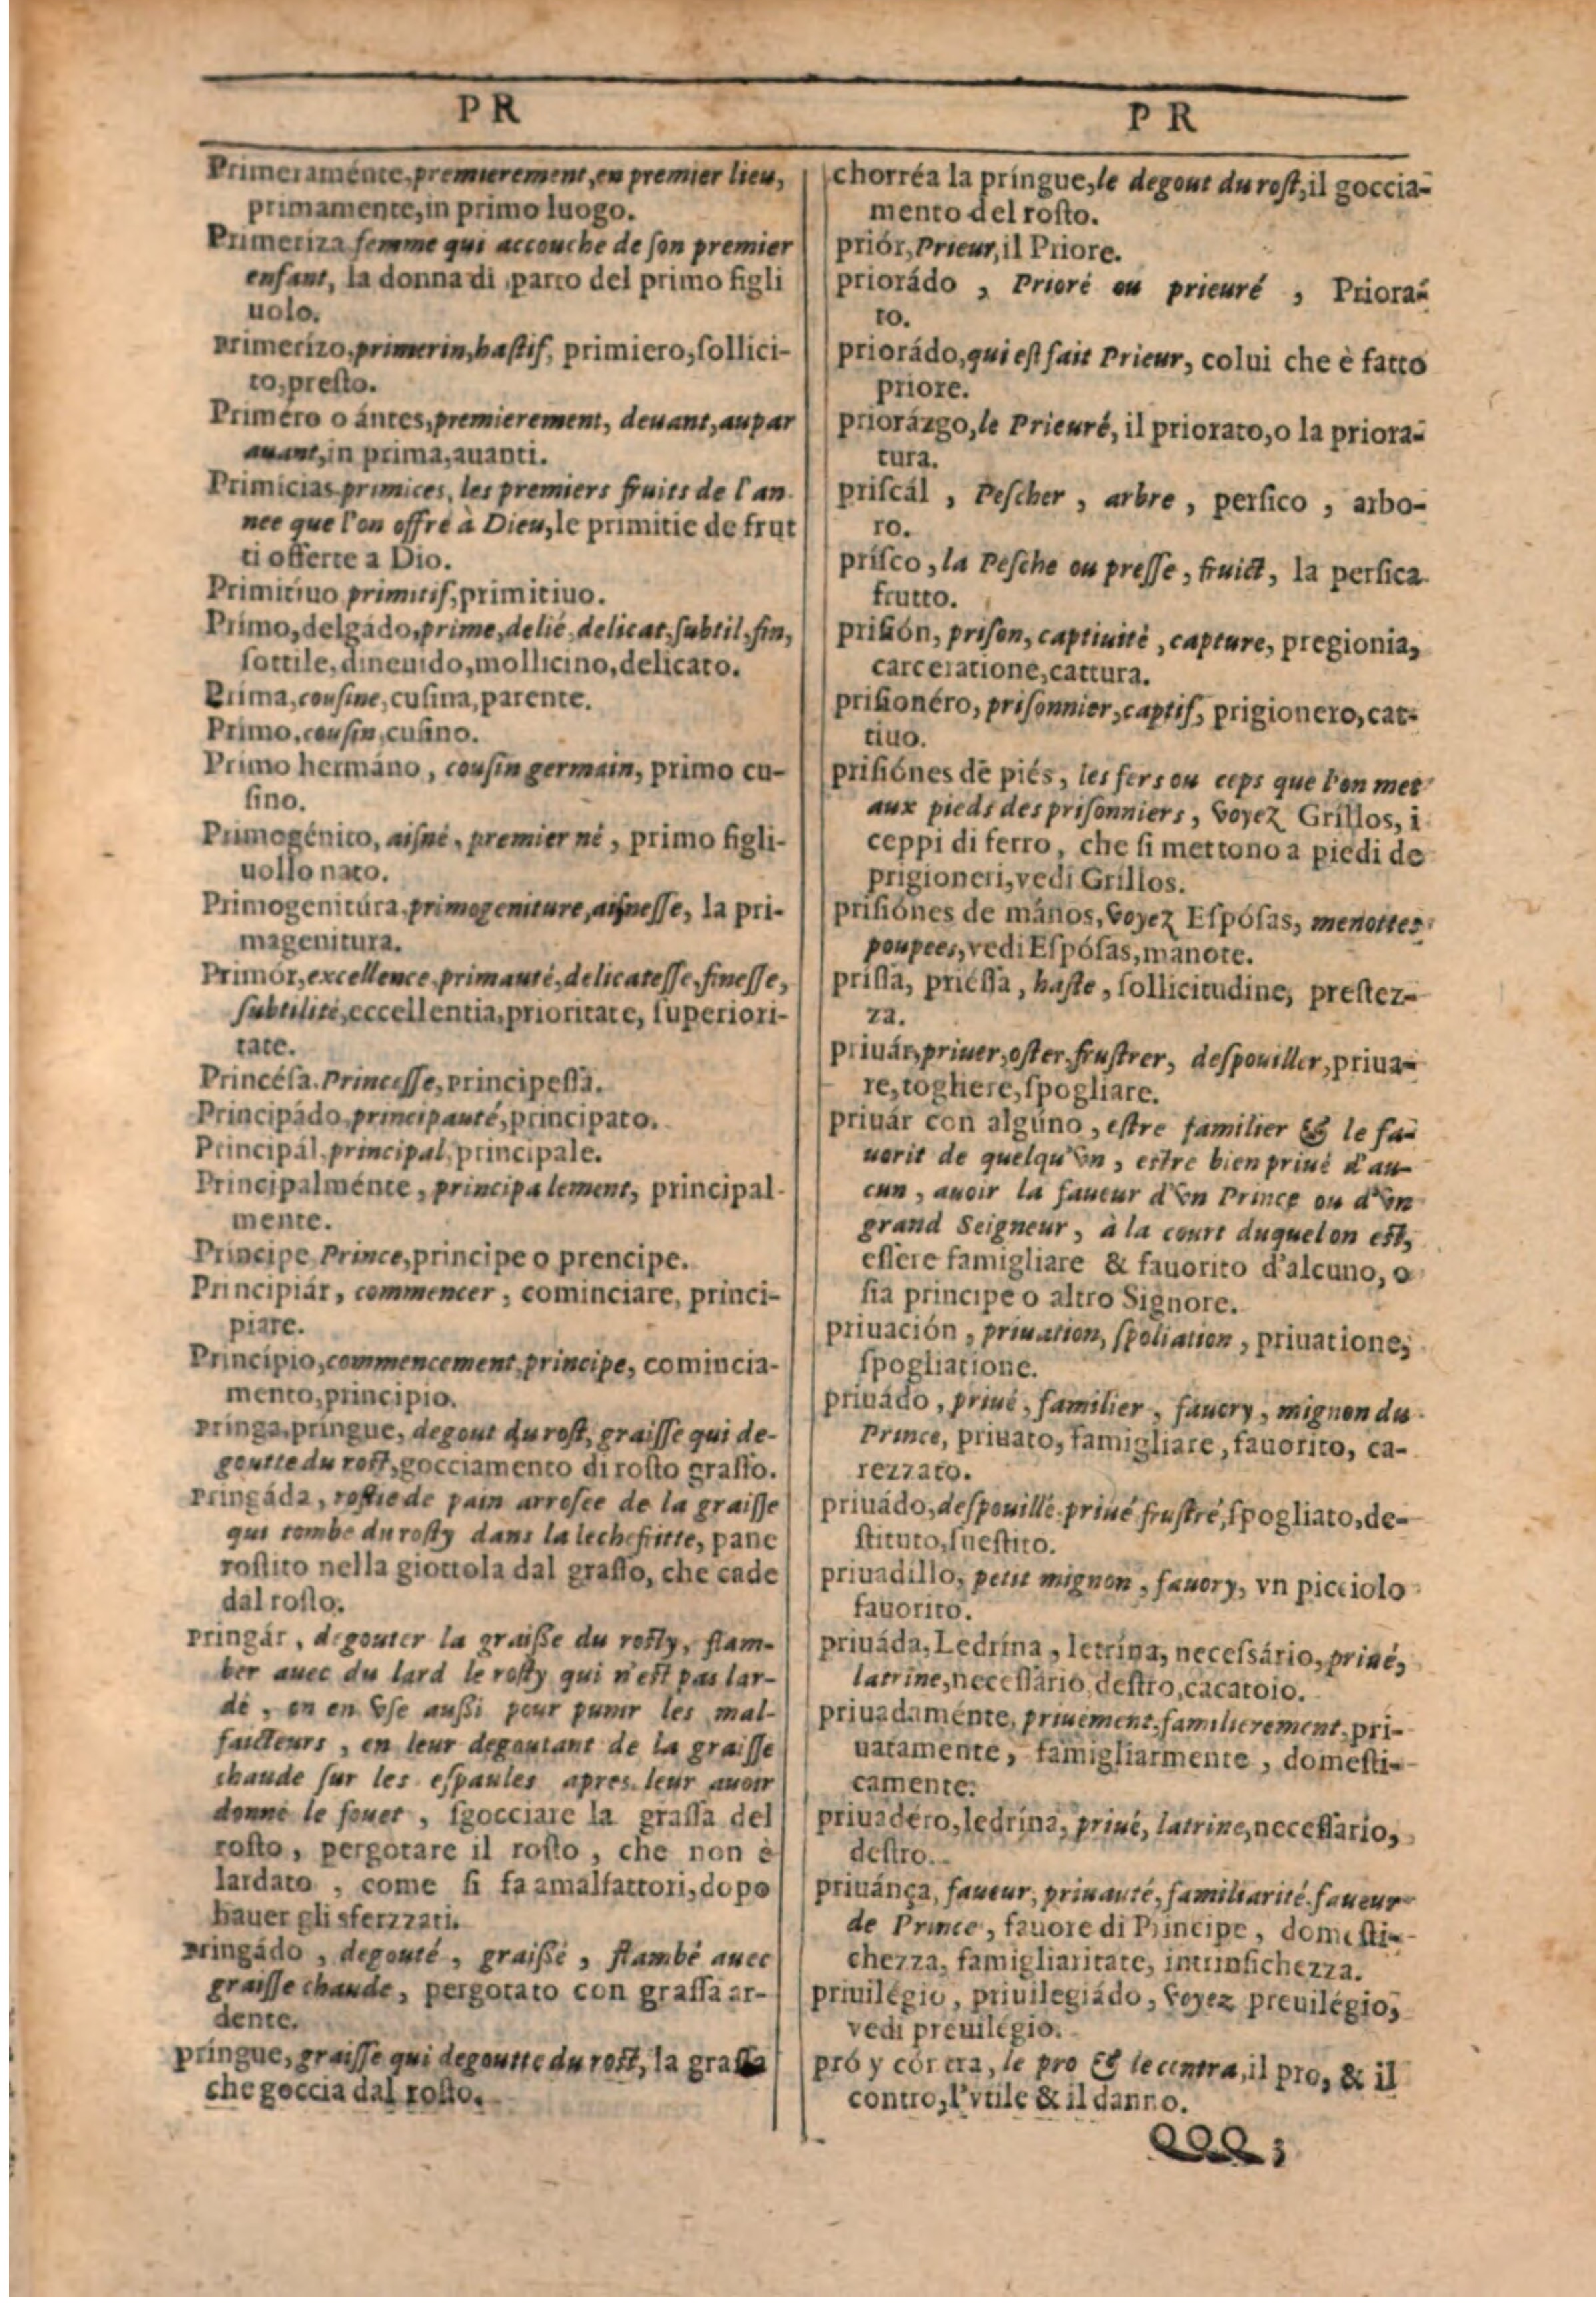 PR
Primeraménte, premierement, en premier lieu,
primamente, in primo luogo.
Primeriza femme qui accouche de ſon premier
enfant, la donna di parto del primo figli
uolo.
Primerizo, primerin, haſtif, primiero, ſollici-
to, preſto.
Priméro o ántes, premierement, deuant, aupar
auant, in prima, auanti.
Primicias primices, les premiers fruits de l'an-
nee que l'on offre à Dieu, le primitie de frut
ti offerte a Dio.
Primitíuo primitif, primitiuo.
Prímo, delgádo, prime, delié, delicat, ſubtil, fin,
ſottile, dineuido, mollicino, delicato.
Príma, couſine, cuſina, parente.
Prímo, couſin, cuſino.
Prímo hermáno, couſin germain, primo cu-
ſino.
Primogénito, aiſné, premier né, primo figli-
uollo nato.
Primogenitúra, primogeniture, aiſneſſe, la pri-
magenitura.
Primór, excellence, primauté, delicateſſe, fineſſe,
ſubtilité, eccellentia, prioritate, ſuperiori-
tate.
Princéſa. Princeſſe, principeſſa.
Principádo, principauté, principato.
Principál, principal, principale.
Principalménte, principalement, principal-
mente.
Príncipe Prince, principe o prencipe.
Principiár, commencer, cominciare, princi-
piare.
Princípio, commencement, principe, comincia-
mento, principio.
Prínga, príngue, degout du roſt, graiſſe qui de-
goutte du roſt, gocciamento di roſto graſſo.
Pringáda, roſtie de pain arroſee de la graiſſe
qui tombe du roſty dans la lechefritte, pane
roſtito nella giottola dal graſſo, che cade
dal roſto.
Pringár, degouter la graiſſe du roſty, flam-
ber auec du lard le roſty qui n'eſt pas lar-
dé, on en vſe auſſi pour punir les mal-
faicteurs, en leur degoutant de la graiſſe
chaude ſur les eſpaules apres leur auoir
donné le fouet, ſgocciare la graſſa del
roſto, pergotare il roſto, che non è
lardato, come ſi fa amalfattori, dopo
hauer gli sferzzati.
Pringádo, degouté, graiſſé, flambé auec
graiſſe chaude, pergotato con graſſa ar-
dente.
príngue, graiſſe qui degoutte du roſt, la graſſa
che goccia dal roſto.
PR
chorréa la príngue, le degout du roſt, il goccia-
mento del roſto.
priór, Prieur, il Priore.
priorádo, Prioré ou prieuré, Priora-
to.
priorádo, qui eſt fait Prieur, colui che è fatto
priore.
priorázgo, le Prieuré, il priorato, o la priora-
tura.
priſcál, Peſcher, arbre, perſico, arbo-
ro.
príſco, la Peſche ou preſſe, fruict, la perſica
frutto.
priſión, priſon, captiuité, capture, pregionia,
carceratione, cattura.
priſionéro, priſonnier, captif, prigionero, cat-
tiuo.
priſiónes de piés, les fers ou ceps que l'on met
aux pieds des priſonniers, voyez Gríllos, i
ceppi di ferro, che ſi mettono a piedi de
prigioneri, vedi Gríllos.
priſiónes de mános, voyez Eſpóſas, menottes
poupees, vedi Eſpóſas, manote.
príſſa, priéſſa, haſte, ſollicitudine, preſtez-
za.
priuár, priuer, oſter, fruſtrer, deſpouiller, priua-
re, togliere, ſpogliare.
priuár con algúno, eſtre familier & le fa-
uorit de quelqu'vn, eſtre bien priué d'au-
cun, auoir la faueur d'vn Prince ou d'vn
grand Seigneur, à la court duquel on eſt,
eſſere famigliare & fauorito d'alcuno, o
ſia principe o altro Signore.
priuación, priuation, ſpoliation, priuatione,
ſpogliatione.
priuádo, priué, familier, fauory, mignon du
Prince, priuato, famigliare, fauorito, ca-
rezzato.
priuádo, deſpouillé, priué fruſtré, ſpogliato, de-
ſtituto, ſueſtito.
priuadillo, petit mignon, fauory, vn picciolo
fauorito.
priuáda, Ledrína, letrína, neceſsário, priué,
latrine, neceſſario, deſtro, cacatoio.
priuadaménte, priuement, familierement, pri-
uatamente, famigliarmente, domeſti-
camente.
priuadéro, ledrína, priué, latrine, neceſſario,
deſtro.
priuánça, faueur, priuauté, familiarité, faueur
de Prince, fauore di Principe, domeſti-
chezza, famigliaritate, intrinſichezza.
priuilégio, priuilegiádo, voyez preuilégio,
vedi preuilégio.
pró y cóntra, le pro & le contra, il pro, & il
contro, l'vtile & il danno.
QQQ;